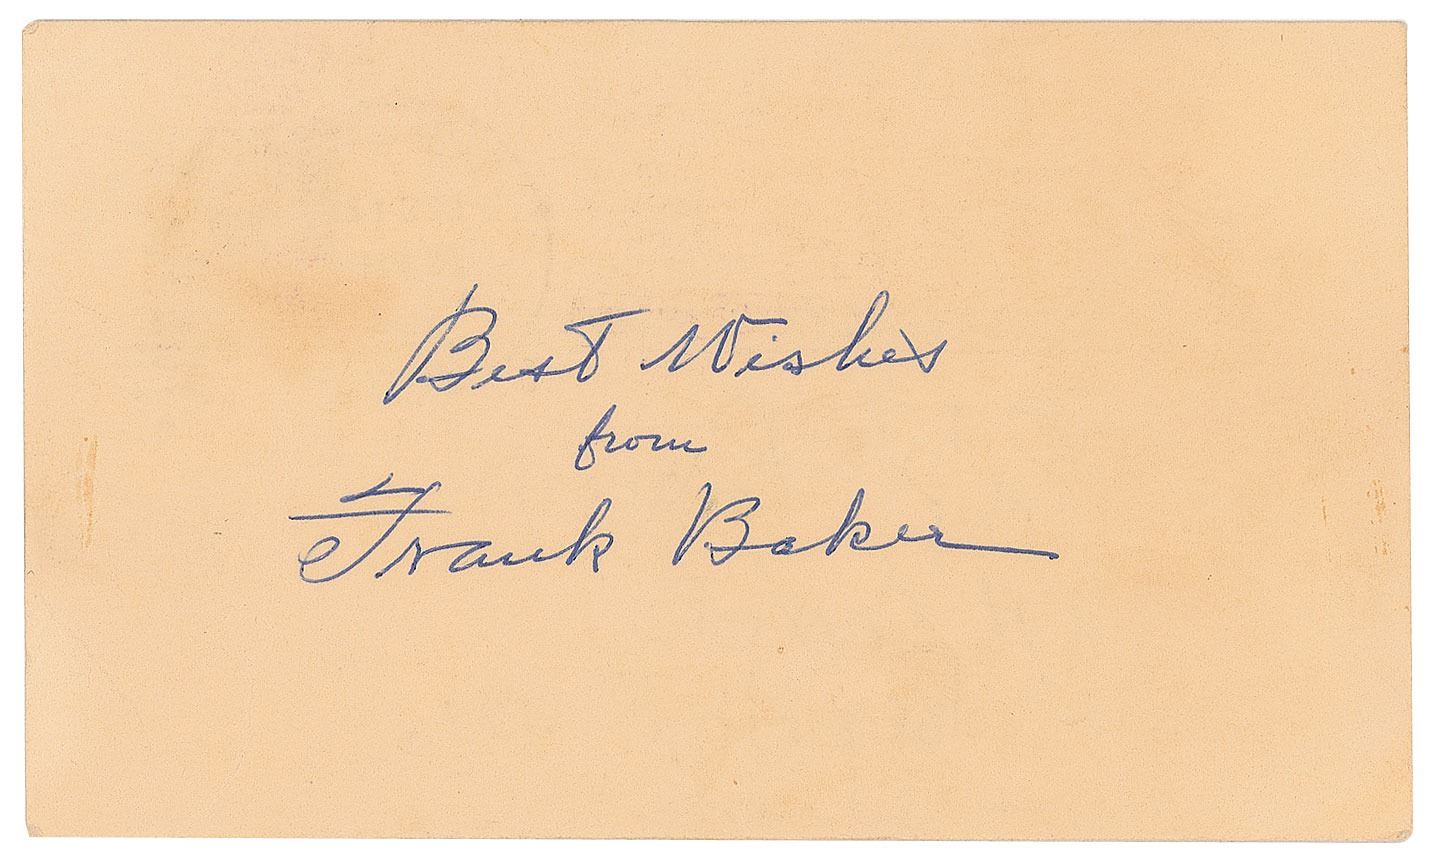 Best Wishes
from
Frank Baker